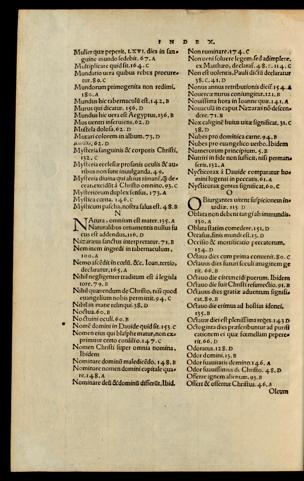 INDEX.
Mulier quæ peperit, LXVI. dies in san-
guine mundo sedebit. 67. A
Multiplicare quid sit. 164. C
Mundatio uera quibus rebus procure-
tur. 89. C
Mundorum primogenita non redimi.
180. A
Mundus hic tabernaculũ est. 142. B
Murus qui dicatur. 156. D
Mundus hic uera est Aegyptus. 136. B
Mus uentri inseruiens. 62. D
Mustela dolosa. 62. D
Mutari colorem in album. 73. D
62. D
Mysteria sanguinis & corporis Christi,
132. C
Mysteria ecclesiæ profanis oculis & au-
ribus non sunt inuulganda. 49.
Mysteria diuina qui alijs
ceat, excidit à Christo omnino. 93. C
Mysteriorum duplex sensus. 173. A
Mystica cœna. 146. C
Mysticum pascha, nostra salus est. 48. B
N
Natura, omnium est mater. 135. A
Naturalibus ornamentis nullus fu
cus est addendus. 116. D
Nazaræus sanctus interpretatur. 71. B
Nem inem ingredi in tabernaculum.
100. A
Nemo ascẽdit in cœlũ, &c. Ioan. tertio,
declaratur, 165. A
Nihil negligenter traditum est à legisla
tore. 79. B
Nihil quærendum de Christo, nisi quod
euangelium nobis permittit. 94. C
Nihil in mane relinqui. 38. D
Noctua. 60. B
Noctuini oculi. 60. B
Nomẽ domini in Dauide quid sit. 153. C
Nomen eius qui blasphematur, non ex-
primitur certo consilio. 147. C
Nomen Christi super omnia nomina,
Ibidem
Nominare dominũ maledicẽdo. 148. B
Nominare nomen domini capitale qua-
re. 148. A
Nominare deũ & dominũ differũt, Ibid.
Non ruminare. 174. C
Non ueni soluere legem sed adimplere,
ex Matthæo, declarat. 48. C. 114. C
Non est uolentis, Pauli dictũ declaratur
38. C. 41. D
Nonus annus retributionis dies. 154. A
Nouerca matris coniungitur. 121. B
Nouissima hora in Ioanne quæ. 141. A
Nouacula in caput Nazaræi nõ descen-
dere. 71. B
Nox caliginẽ huius uitæ significat. 31. C
38. D
Nubes pro domínica carne. 94. B
Nubes pro euangelico uerbo. Ibidem
Numerorum principium. 5. B
Nutriri in fide non sufficit, nisi perman-
serit. 132. A
Nycticorax à Dauide comparatur ho-
mini lugenti in peccatis. 61. A
Nycticorax gentes significat. 60. C
O
Obiurgantes uirent suspicionem in-
uidiæ. 113. D
Oblata non debent tangi ab immundis.
130. A
Oblata statim comedere. 152. D
Oculus, finis mundi est. 15. D
Occisio & mortificatio peccatorum,
134. D
Octauus dies cum prima conuenit. 80. C
Octauus dies futuri seculi imaginem ge-
rit. 66. B
Octauo die circuncidi puerum. Ibidem
Octauo die fuit Christi resurrectio. 92. B
Octauus dies gratiæ aduentum signifi-
cat. 80. B
Octauo die eximus ad hostias idonei.
135. B
Octauus dies est plenissima requies. 143. D
Octoginta dies præsentibantur ad purifi
cationem ei quæ fœmellam pepere-
rit. 66. D
Odoratus. 128. D
Odor domini. 15. B
Odor suauitatis domino. 146. A
Odor suauissimus de Christo. 48. D
Offerre ignem alienum. 95. B
Offert & offertur Christus. 46. A
Oleum